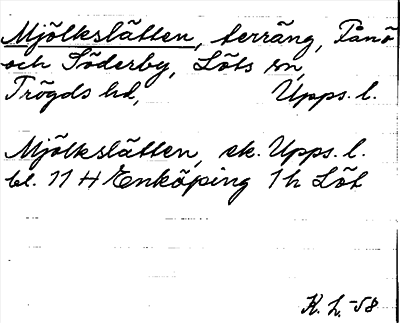 Mjölkslätten, terräng, Tånö
och Söderby, Löts sn,
Trögds hd, Upps. l.
Mjölkslätten, ek. Upps. l.
bl. 11 H Enköping 1h Löt
K. L. -58